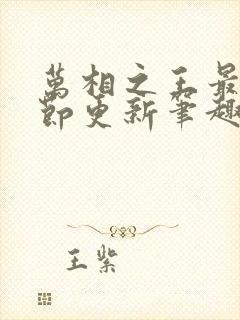 萬相之王最
節更新筆趣
王紫